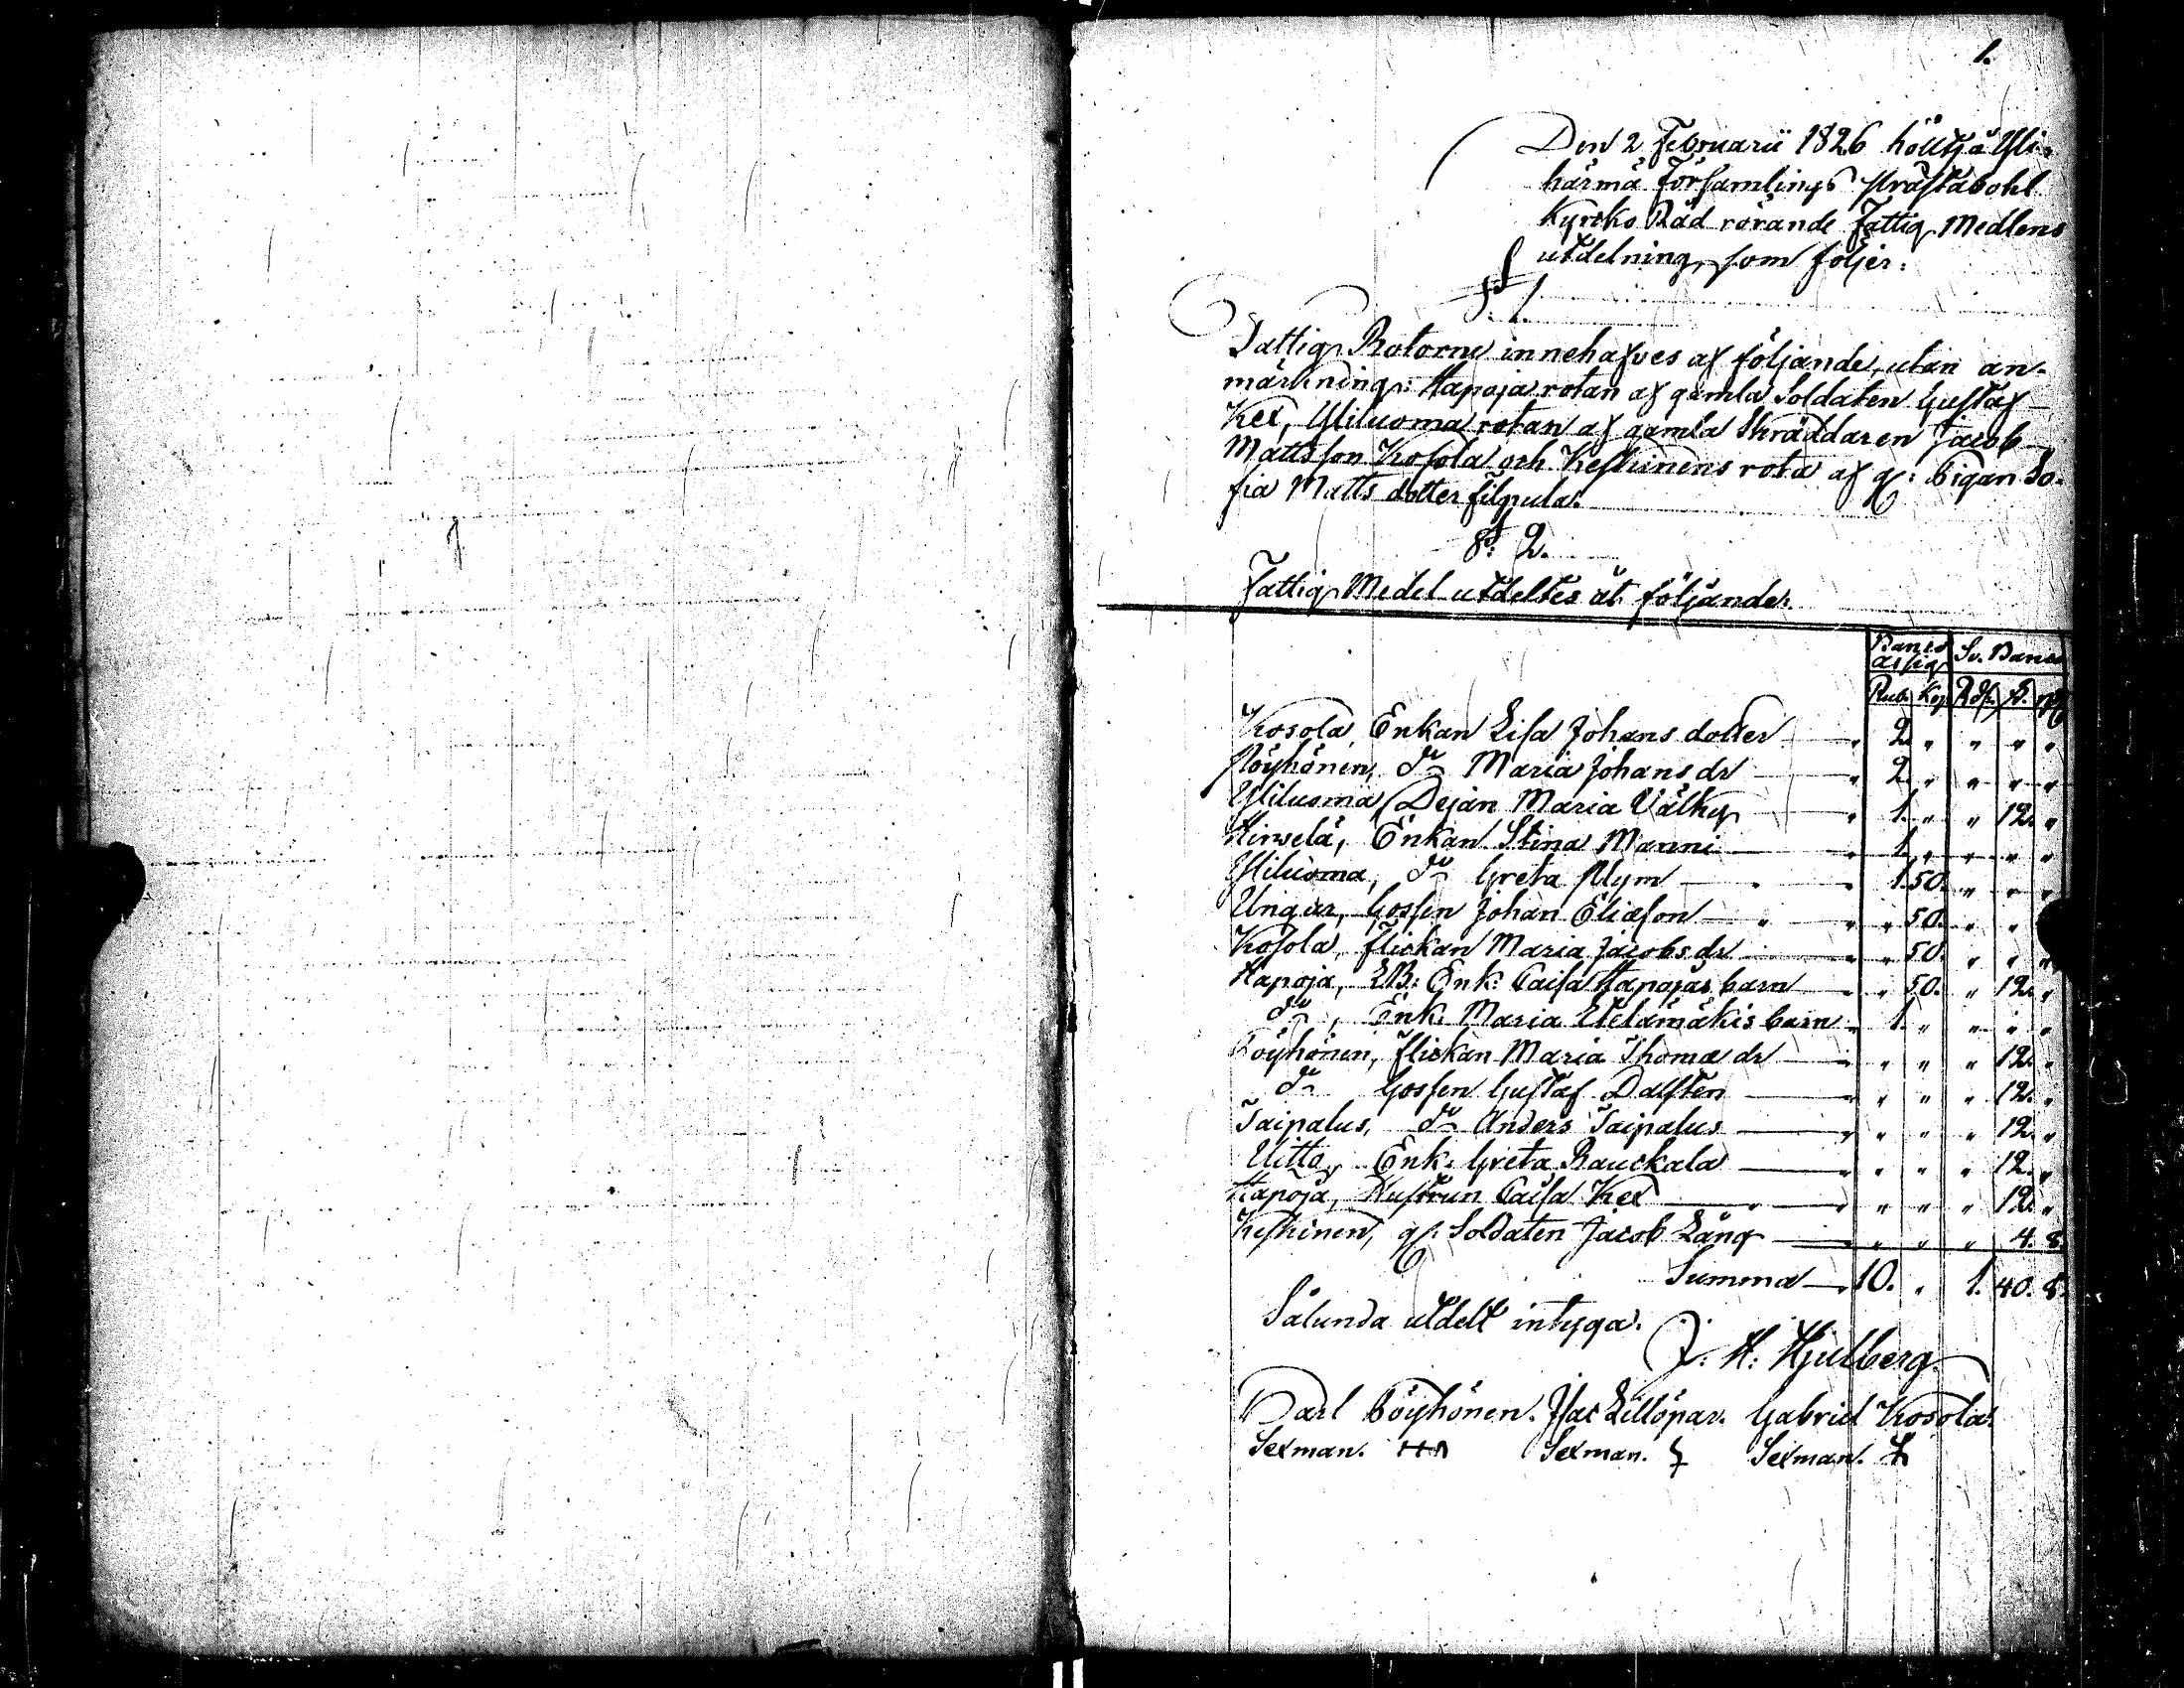 1.
Den 2 Februarii 1826 hölltz å Yli-
härmä Församlings Prästabohl
Kyrcko Råd rörande Fattig Medlens
utdelning, som följer:
§. 1.
Fattig Rotorne innehafves af följande, utan an-
märkning: Hapoja rotan af gamla Soldaten Gustaf
Kex, Yliluoma rotan af gamla Skräddaren Jacob
Mattsson Kosola och Keskinens rota af g: Pigan So-
fia Matts dotter Filpula.
§: 2.
Fattig Medel utdeltes åt följande.
Banco assig Sv. Banco
Rub. Kop. Rdr. s. rst
Kosola, Enkan Lisa Johans dotter 2. " " " "
Pöyhönen, Do Maria Johans dr 2. " " " "
Yliluoma, Dejan Maria Välky 1. " " 12. "
Hirvelä, Enkan Stina Manni 1. " " " "
Yliluoma, Do Greta Plym 1. 50. " " "
Ungar, Gossen Johan Eliasson " 50. " " "
Kosola, Flickan Maria Jacobs dr " 50. " " "
Hapoja, EB: Enk: Caisa Hapojas barn " 50. " 12. "
Do, Enk. Maria Etelämäkis barn 1. " " " "
Pöyhönen, Flickan Maria Thomæ dr " " " 12. "
Do Gossen Gustaf Dalsten " " " 12. "
Taipalus, Do Anders Taipalus " " " 12. "
Uitto, Enk: Greta Rauckala " " " 12. "
Hapoja, Hustrun Caisa Kex " " " 12. "
Keskinen, g: Soldaten Jacob Lång " " " 4. 8.
Summa 10. " 1. 40. 8.
Sålunda utdelt intyga.
J: H: Hjulberg.
Carl Pöyhönen. Isac Lillöpar. Gabriel Kosola.
Sexman. Sexman. Sexman.